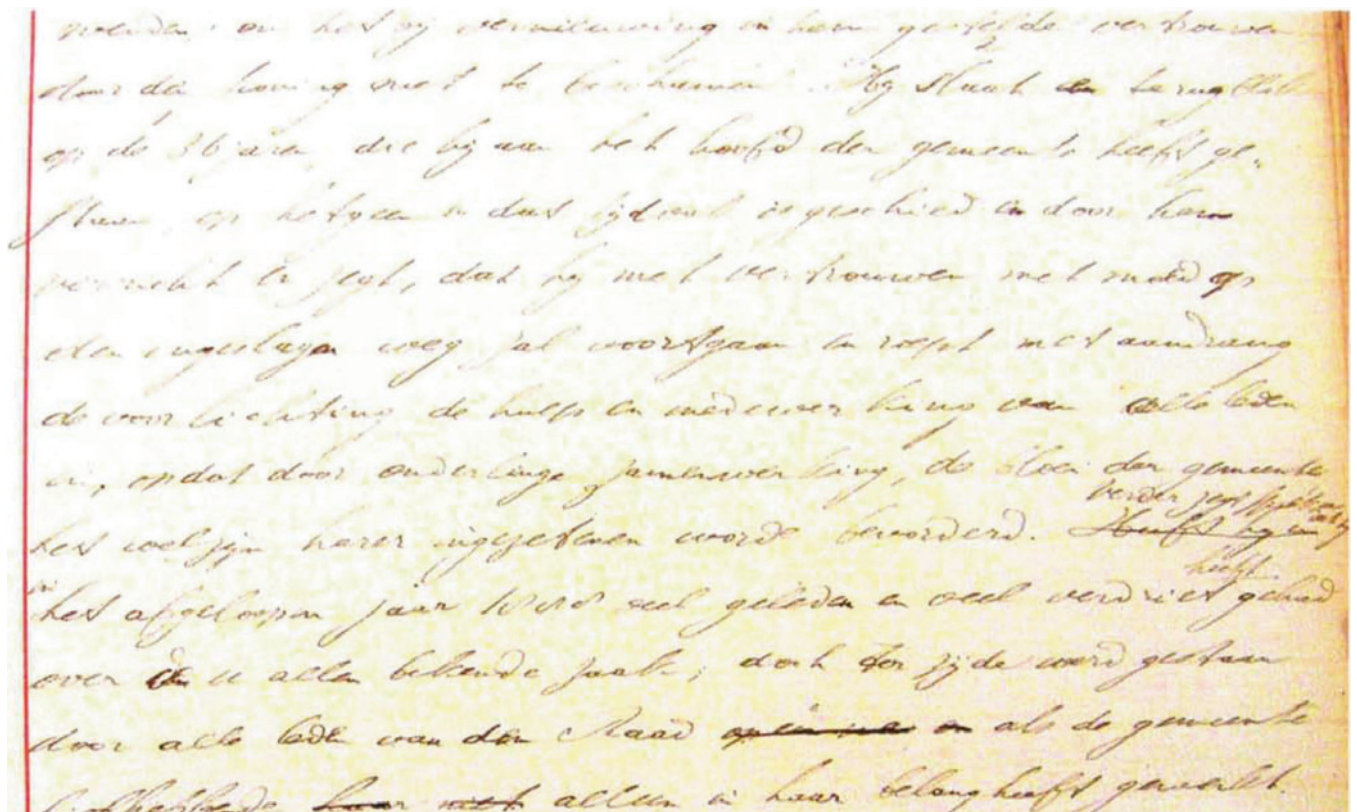 wenden om het bij vernieuwing in hem gestelde vertrouwen
door den koning niet te beschamen. Hij slaat een terugblik
op de 36 jaren, die hij aan het hoofd der gemeente heeft ge-
staan, op hetgeen in dat tijdvak is geschied en door hem
verricht en zegt, dat hij met vertrouwen met moed op
den ingeslagen weg zal voortgaan en roept met aandrang
de voorlichting de hulp en medewerking van alle leden
in, opdat door onderlinge zamenwerking, de bloei der gemeente
verder zegt
het welzijn harer ingezetenen worde bevorderd. Heeft hij in
heeft
in
het afgeloopen jaar veel geleden en veel verdriet gehad
over de u allen bekende zaak; doch ter zijde werd gestaan
door alle leden van den Raad als de gemeente
alleen in haar belang heeft gewerkt.